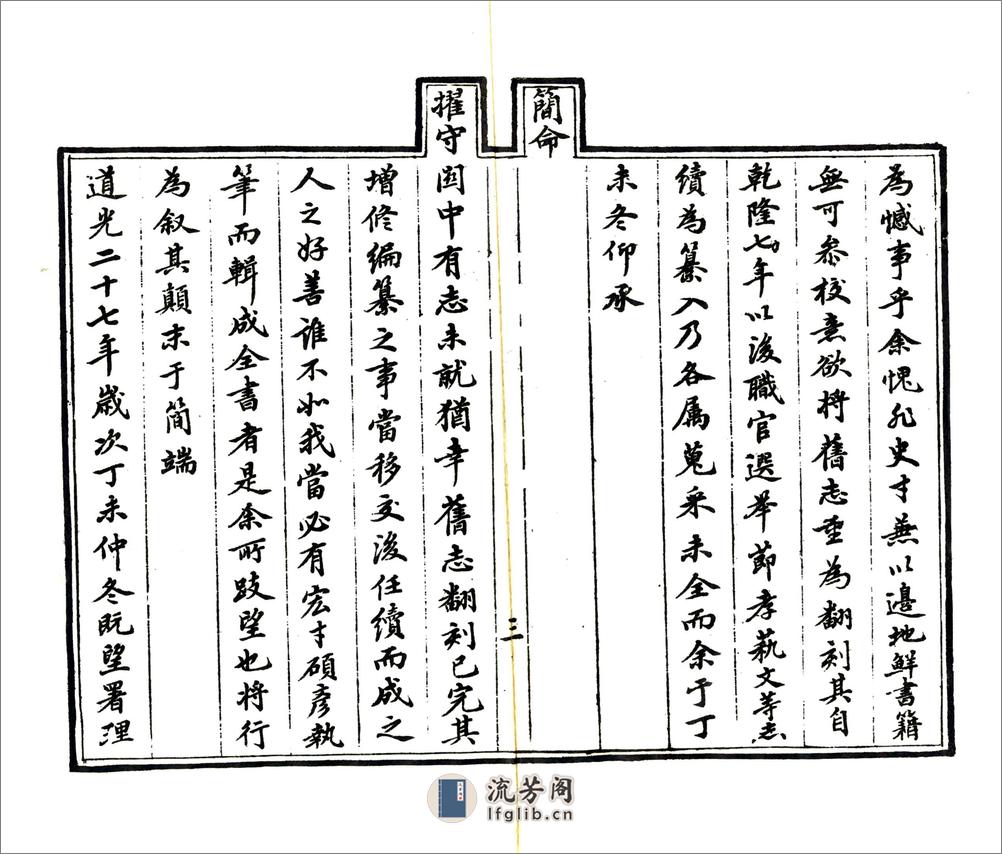 為憾事乎余愧非史才兼以邊地鮮書籍
無可參校意欲將舊志重為翻刻其自
乾隆七年以後職官選舉節孝藝文等志
續為纂入乃各属蒐采未全而余于丁
未冬仰承
簡命
三
擢守関中有志未就猶幸舊志翻刻已完其
增修編纂之事當移交後任續而成之
人之好善誰不如我當必有宏才碩彥執
筆而輯成全書者是余所跂望也將行
為叙其顛末于簡端
道光二十七年歲次丁未仲冬既望署理
流芳阁
lfglib.cn